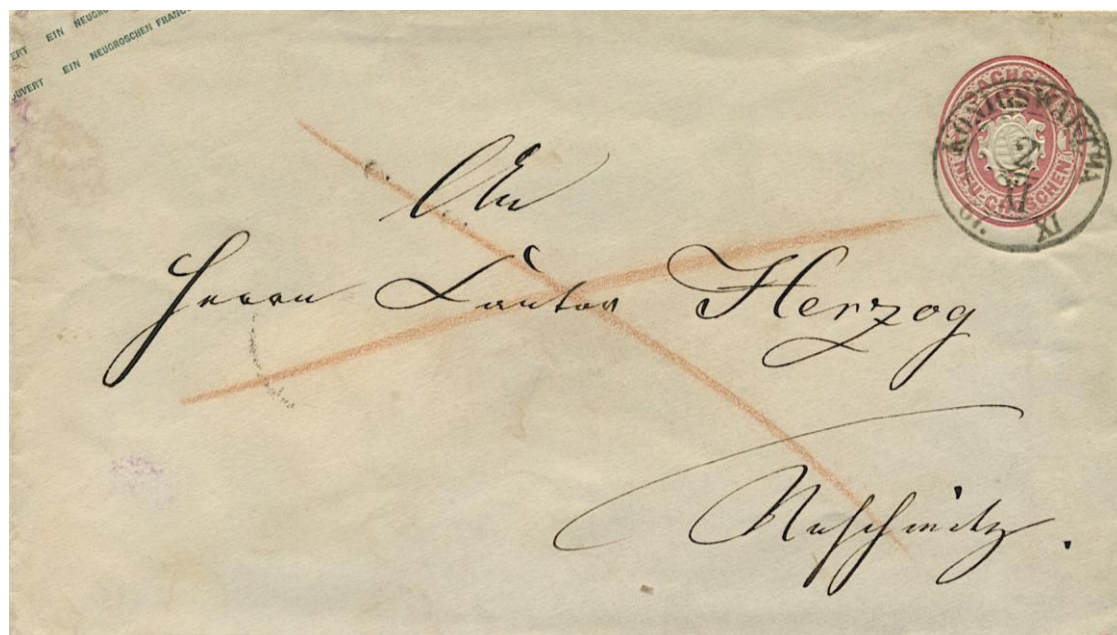 EIN NEUGRO
OUVERT EIN NEUGROSCHEN FRANCO
SACHSEN
NEU-GROSCHEN
KÖNIGSWARTHA
XI
An
Herrn Cantor Herzog
Neschwitz.